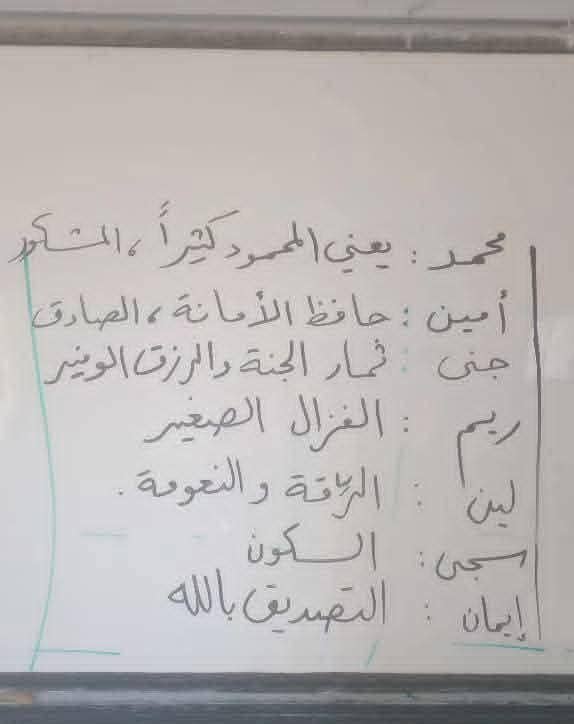 محمد : يعني المحمود كثيراً ، المشكور
أمين : حافظ الأمانة ، الصادق
جنى : ثمار الجنة والرزق الوفير
ريم : الغزال الصغير
لين : الرقة والنعومة .
سجى : السكون
إيمان : التصديق بالله